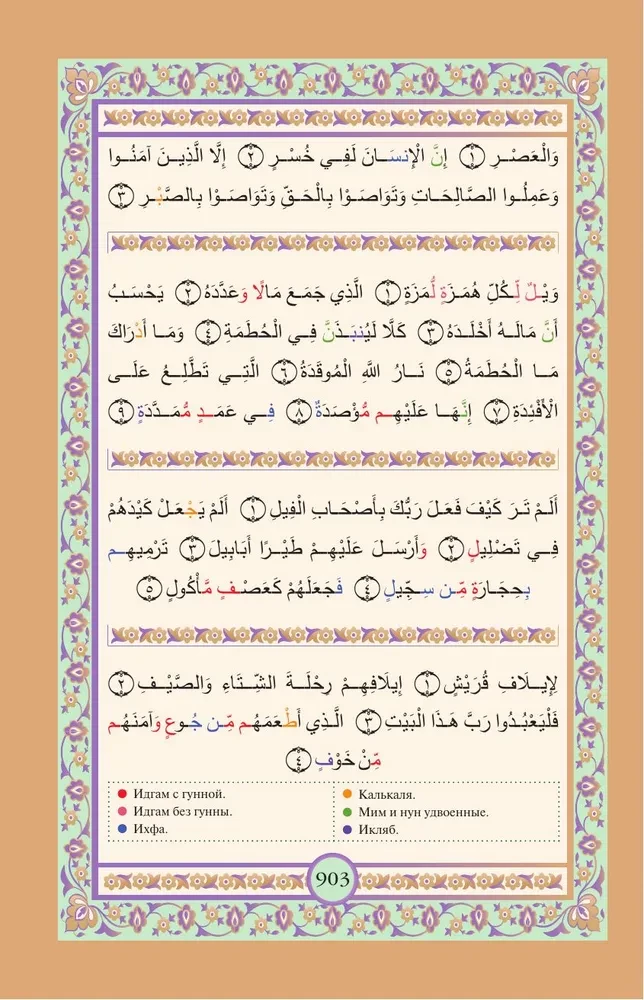 وَالْعَصْرِ ﴿١﴾ إِنَّ الْإِنسَانَ لَفِي خُسْرٍ ﴿٢﴾ إِلَّا الَّذِينَ آمَنُوا
وَعَمِلُوا الصَّالِحَاتِ وَتَوَاصَوْا بِالْحَقِّ وَتَوَاصَوْا بِالصَّبْرِ ﴿٣﴾
وَيْلٌ لِّكُلِّ هُمَزَةٍ لُّمَزَةٍ ﴿١﴾ الَّذِي جَمَعَ مَالًا وَعَدَّدَهُ ﴿٢﴾ يَحْسَبُ
أَنَّ مَالَهُ أَخْلَدَهُ ﴿٣﴾ كَلَّا لَيُنبَذَنَّ فِي الْحُطَمَةِ ﴿٤﴾ وَمَا أَدْرَاكَ
مَا الْحُطَمَةُ ﴿٥﴾ نَارُ اللَّهِ الْمُوقَدَةُ ﴿٦﴾ الَّتِي تَطَّلِعُ عَلَى
الْأَفْئِدَةِ ﴿٧﴾ إِنَّهَا عَلَيْهِم مُّؤْصَدَةٌ ﴿٨﴾ فِي عَمَدٍ مُّمَدَّدَةٍ ﴿٩﴾
أَلَمْ تَرَ كَيْفَ فَعَلَ رَبُّكَ بِأَصْحَابِ الْفِيلِ ﴿١﴾ أَلَمْ يَجْعَلْ كَيْدَهُمْ
فِي تَضْلِيلٍ ﴿٢﴾ وَأَرْسَلَ عَلَيْهِمْ طَيْرًا أَبَابِيلَ ﴿٣﴾ تَرْمِيهِم
بِحِجَارَةٍ مِّن سِجِّيلٍ ﴿٤﴾ فَجَعَلَهُمْ كَعَصْفٍ مَّأْكُولٍ ﴿٥﴾
لِإِيلَافِ قُرَيْشٍ ﴿١﴾ إِيلَافِهِمْ رِحْلَةَ الشِّتَاءِ وَالصَّيْفِ ﴿٢﴾
فَلْيَعْبُدُوا رَبَّ هَذَا الْبَيْتِ ﴿٣﴾ الَّذِي أَطْعَمَهُم مِّن جُوعٍ وَآمَنَهُم
مِّنْ خَوْفٍ ﴿٤﴾
Идгам с гунной.
Идгам без гунны.
Ихфа.
Калькаля.
Мим и нун удвоенные.
Икляб.
903